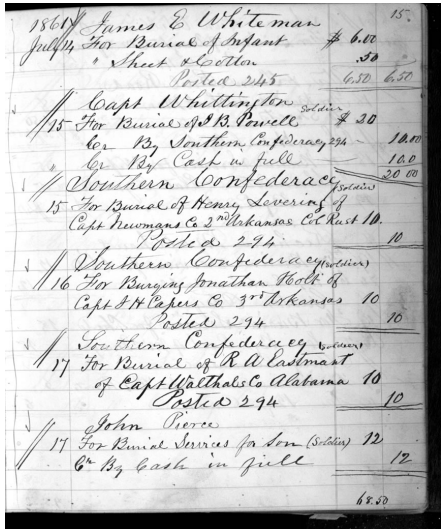 15.
1861 // James E Whiteman
July 14 For Burial of Infant $ 6.00
" Sheet & Cotton .50
Posted 245 6.50 6.50
// Capt Whittington Soldier
15 For Burial of J B Powell $ 20
Cr By Southern Confederacy 294 10.00
" Cr By Cash in full 10.0
20 00
// Southern Confederacy (Soldier
15 For Burial of Henry Levering of
Capt Newmans Co 2nd Arkansas Col Rust 10.
Posted 294. 10
// Southern Confederacy (Soldier)
16 For Burying Jonathan Holt of
Capt J H Capers Co 3rd Arkansas 10
Posted 294 10
// Southern Confederacy (Soldier)
17 For Burial of R A Eastmant
of Capt Walthals Co Alabama 10
Posted 294 10
// John Pierce
17 For Burial Services for Son (Soldier) 12
Cr By Cash in full 12
68.50